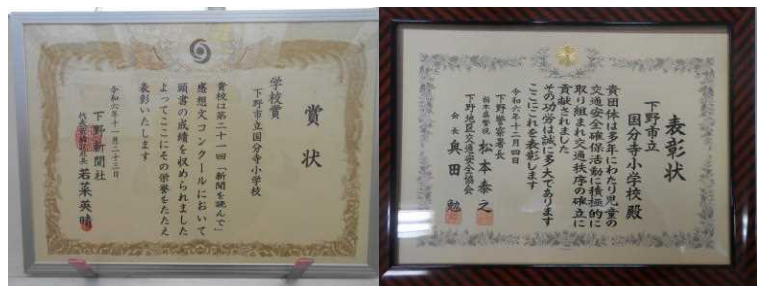 賞状
学校賞
下野市立国分寺小学校
貴校は第二十一回「新聞を読んで」
感想文コンクールにおいて
頭書の成績を収められました
よってここにその栄誉をたたえ
表彰いたします
令和六年十一月二十三日
下野新聞社
若菜英晴
表彰状
下野市立
国分寺小学校殿
貴団体は多年にわたり児童の
交通安全確保活動に積極的に
取り組まれ交通秩序の確立に
貢献されました
その功労は誠に多大であります
ここにこれを表彰します
令和六年十二月四日
下野警察署長
栃木県警視 松本泰之
下野地区交通安全協会
会長 奥田勉